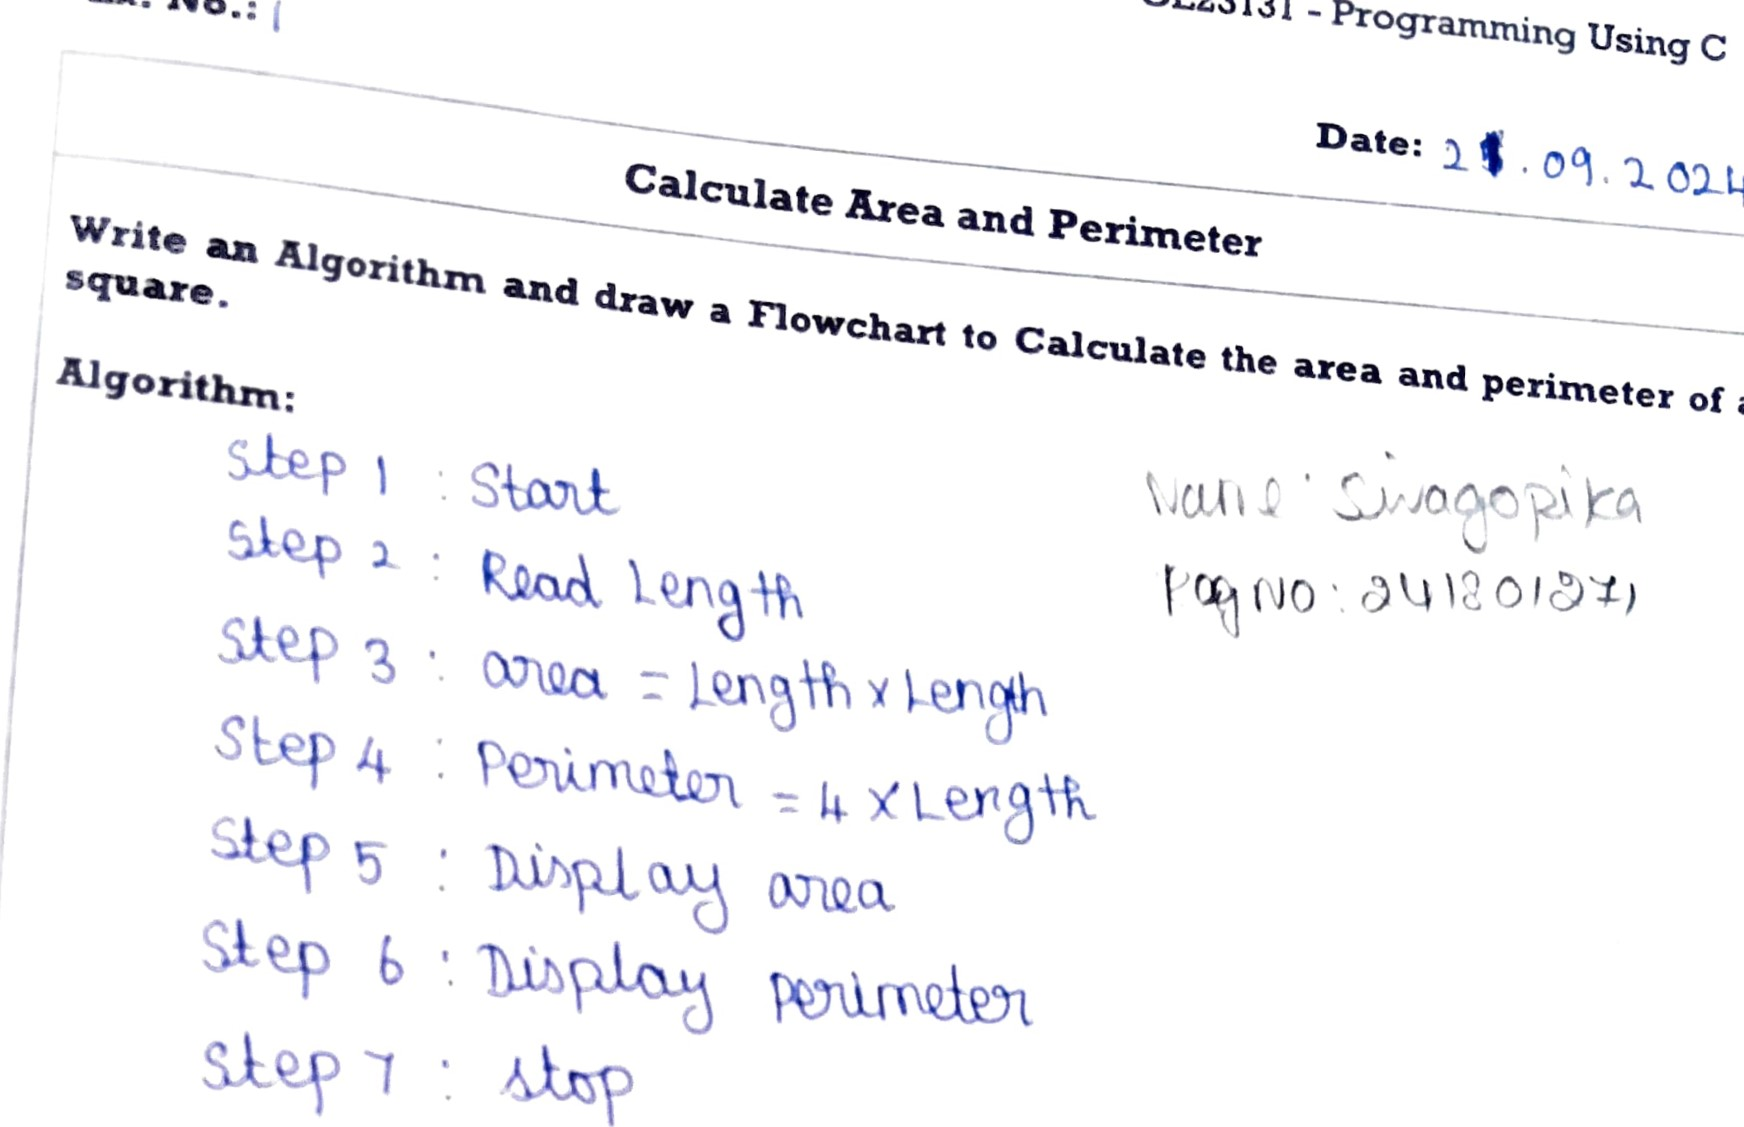 No.: 1
- Programming Using C
Date: .09.2024
Calculate Area and Perimeter
Write an Algorithm and draw a Flowchart to Calculate the area and perimeter of a
square.
Algorithm:
Step 1 : Start
Step 2 : Read Length
Step 3 : area = Length x Length
Step 4 : Perimeter = 4 x Length
Step 5 : Display area
Step 6 : Display perimeter
Step 7 : stop
Name: Sivagopika
NO: 241801271